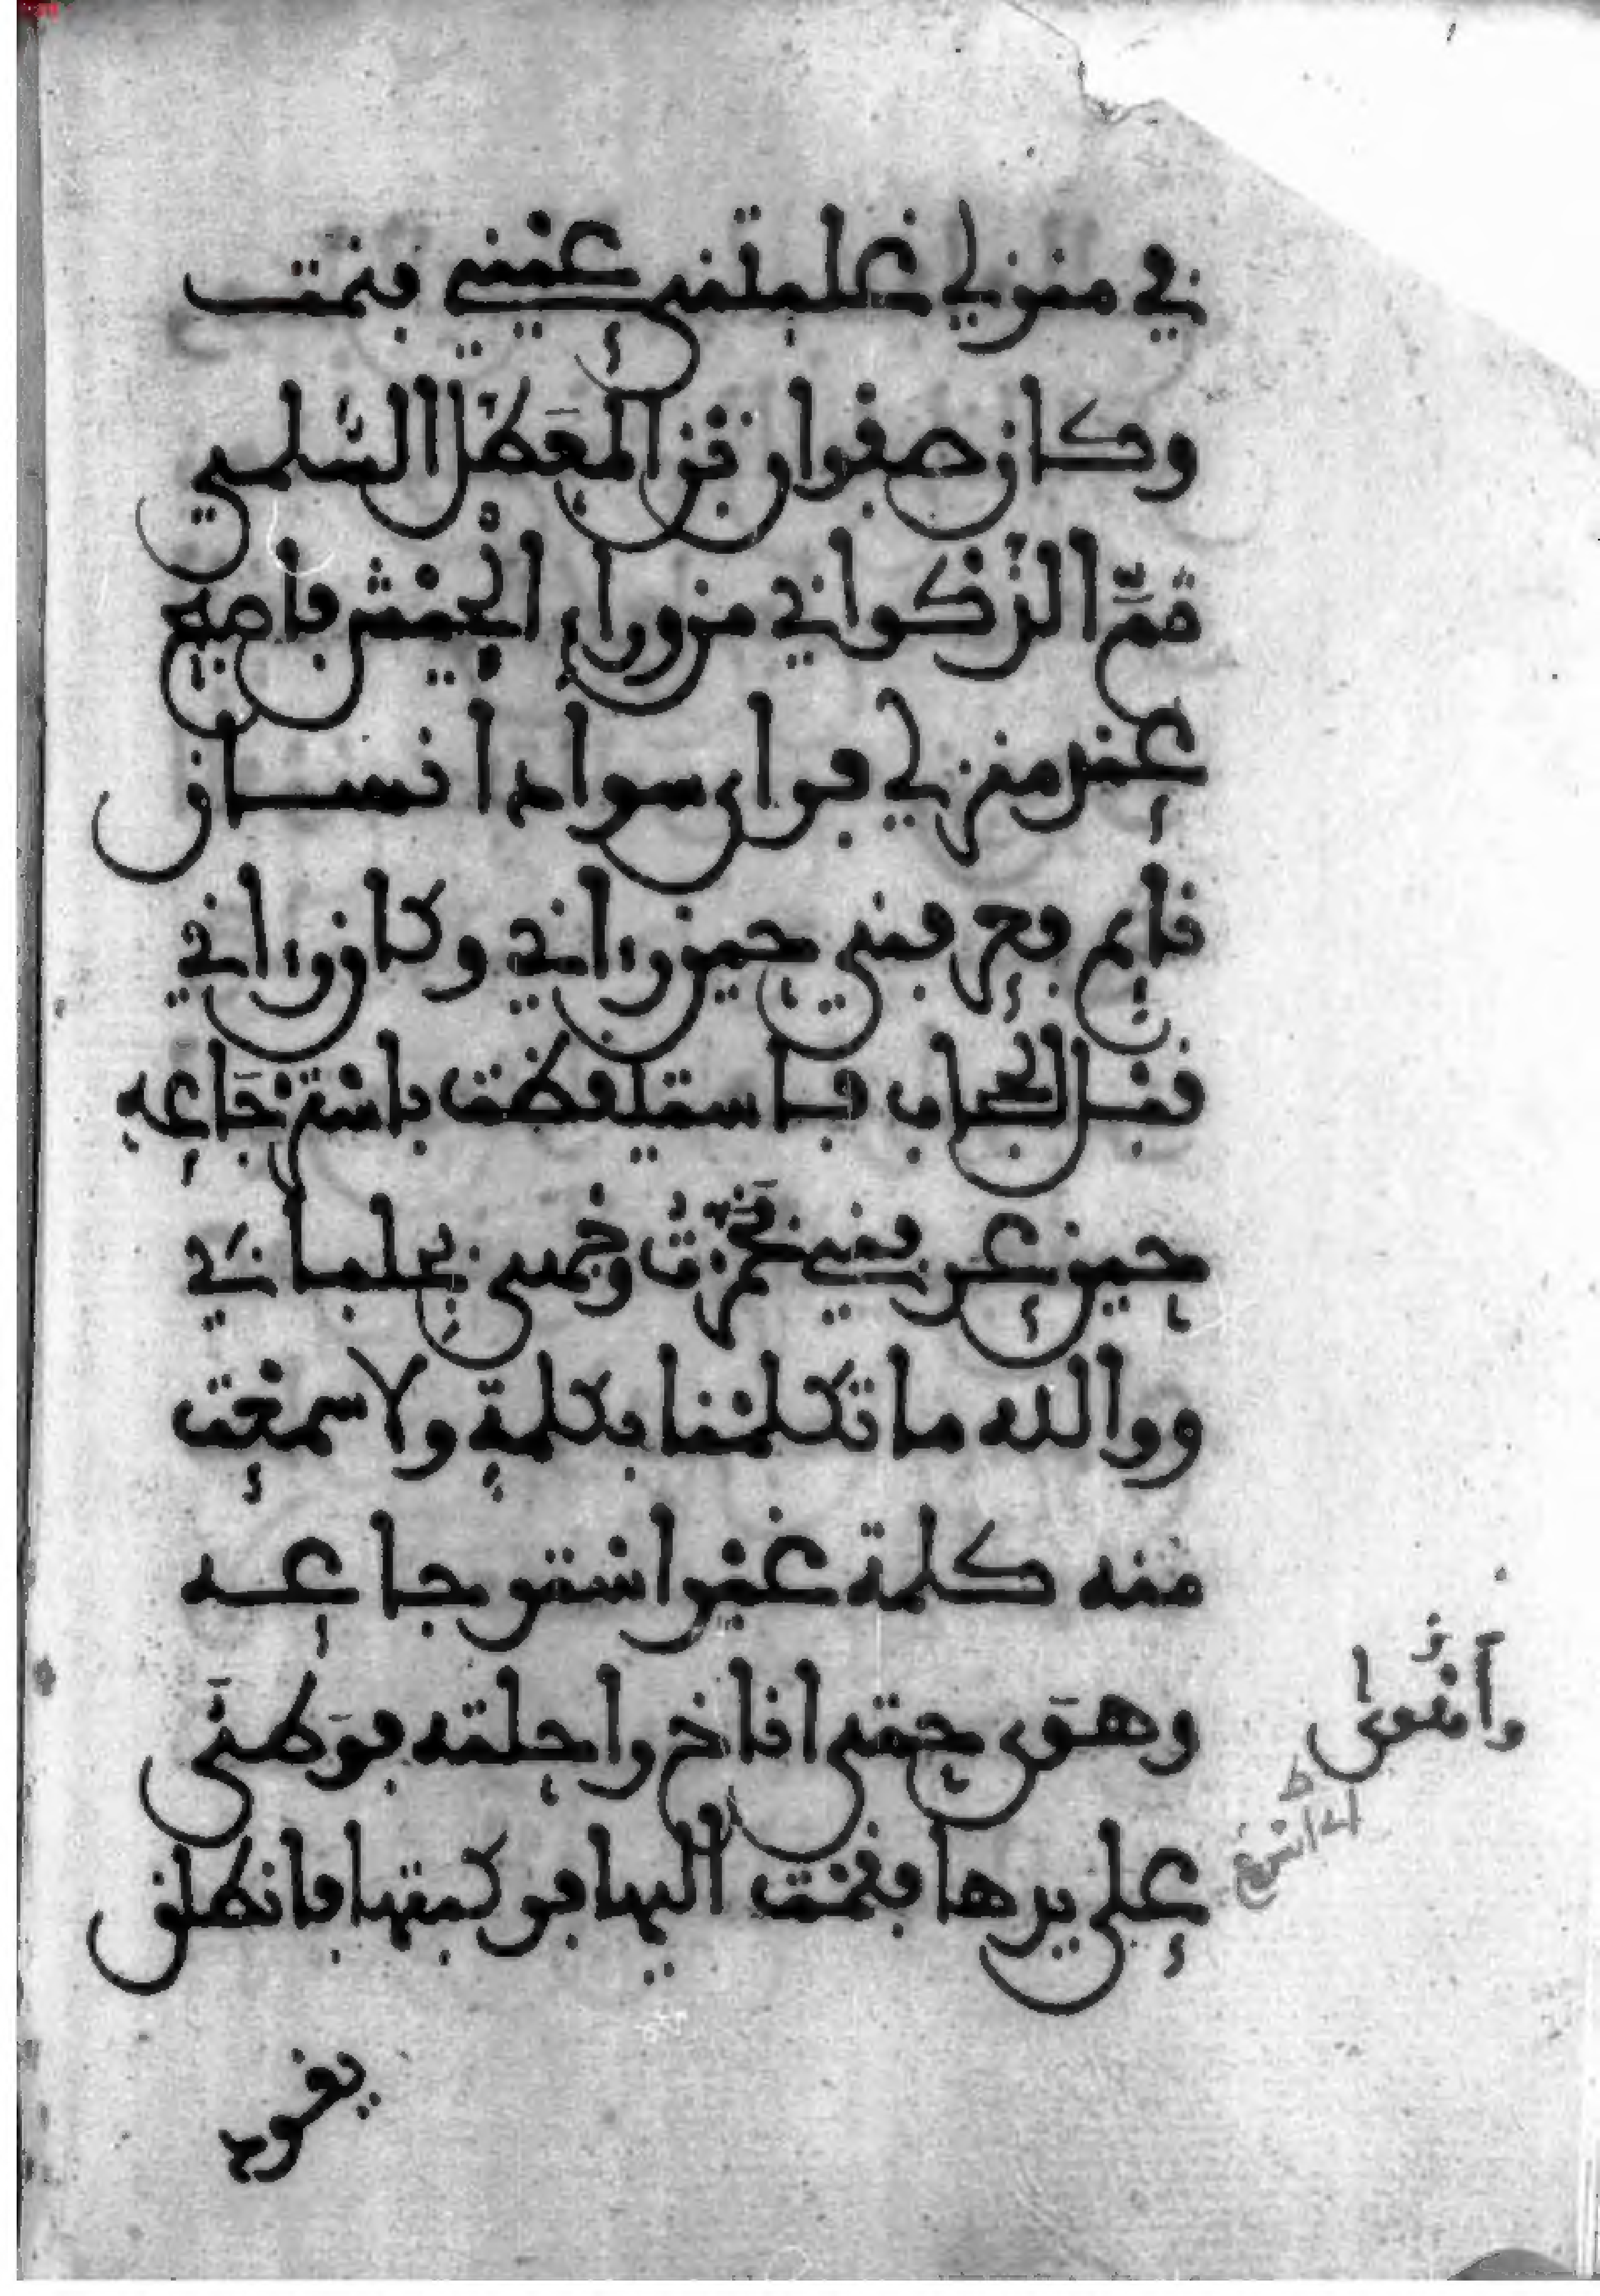 في منزلي غلبتني عيني فنمت
وكان صفوان بن المعطل السلمي
ثم الذكواني من وراء الجيش فاصبح
عند منزلي فراى سواد انسان
نايم فعرفني حين راني وكان راني
قبل الحجاب فاستيقظت باسترجاعه
حين عرفني فخمرت وجهي بجلبابي
ووالله ما تكلمنا بكلمة ولا سمعت
منه كلمة غير استرجاعه
وهوى حتى اناخ راحلته فوطئ
على يدها فقمت اليها فركبتها فانطلق
يقود